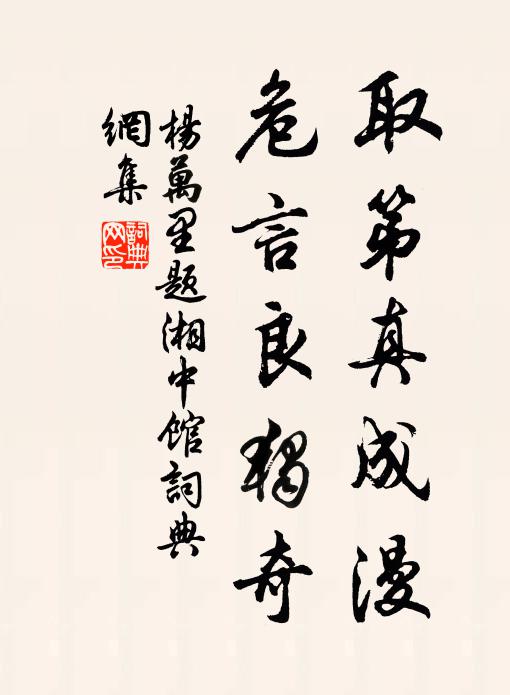 取第真成漫
危言良獨奇
楊萬里題湘中館詞典
網集
詞典
网印